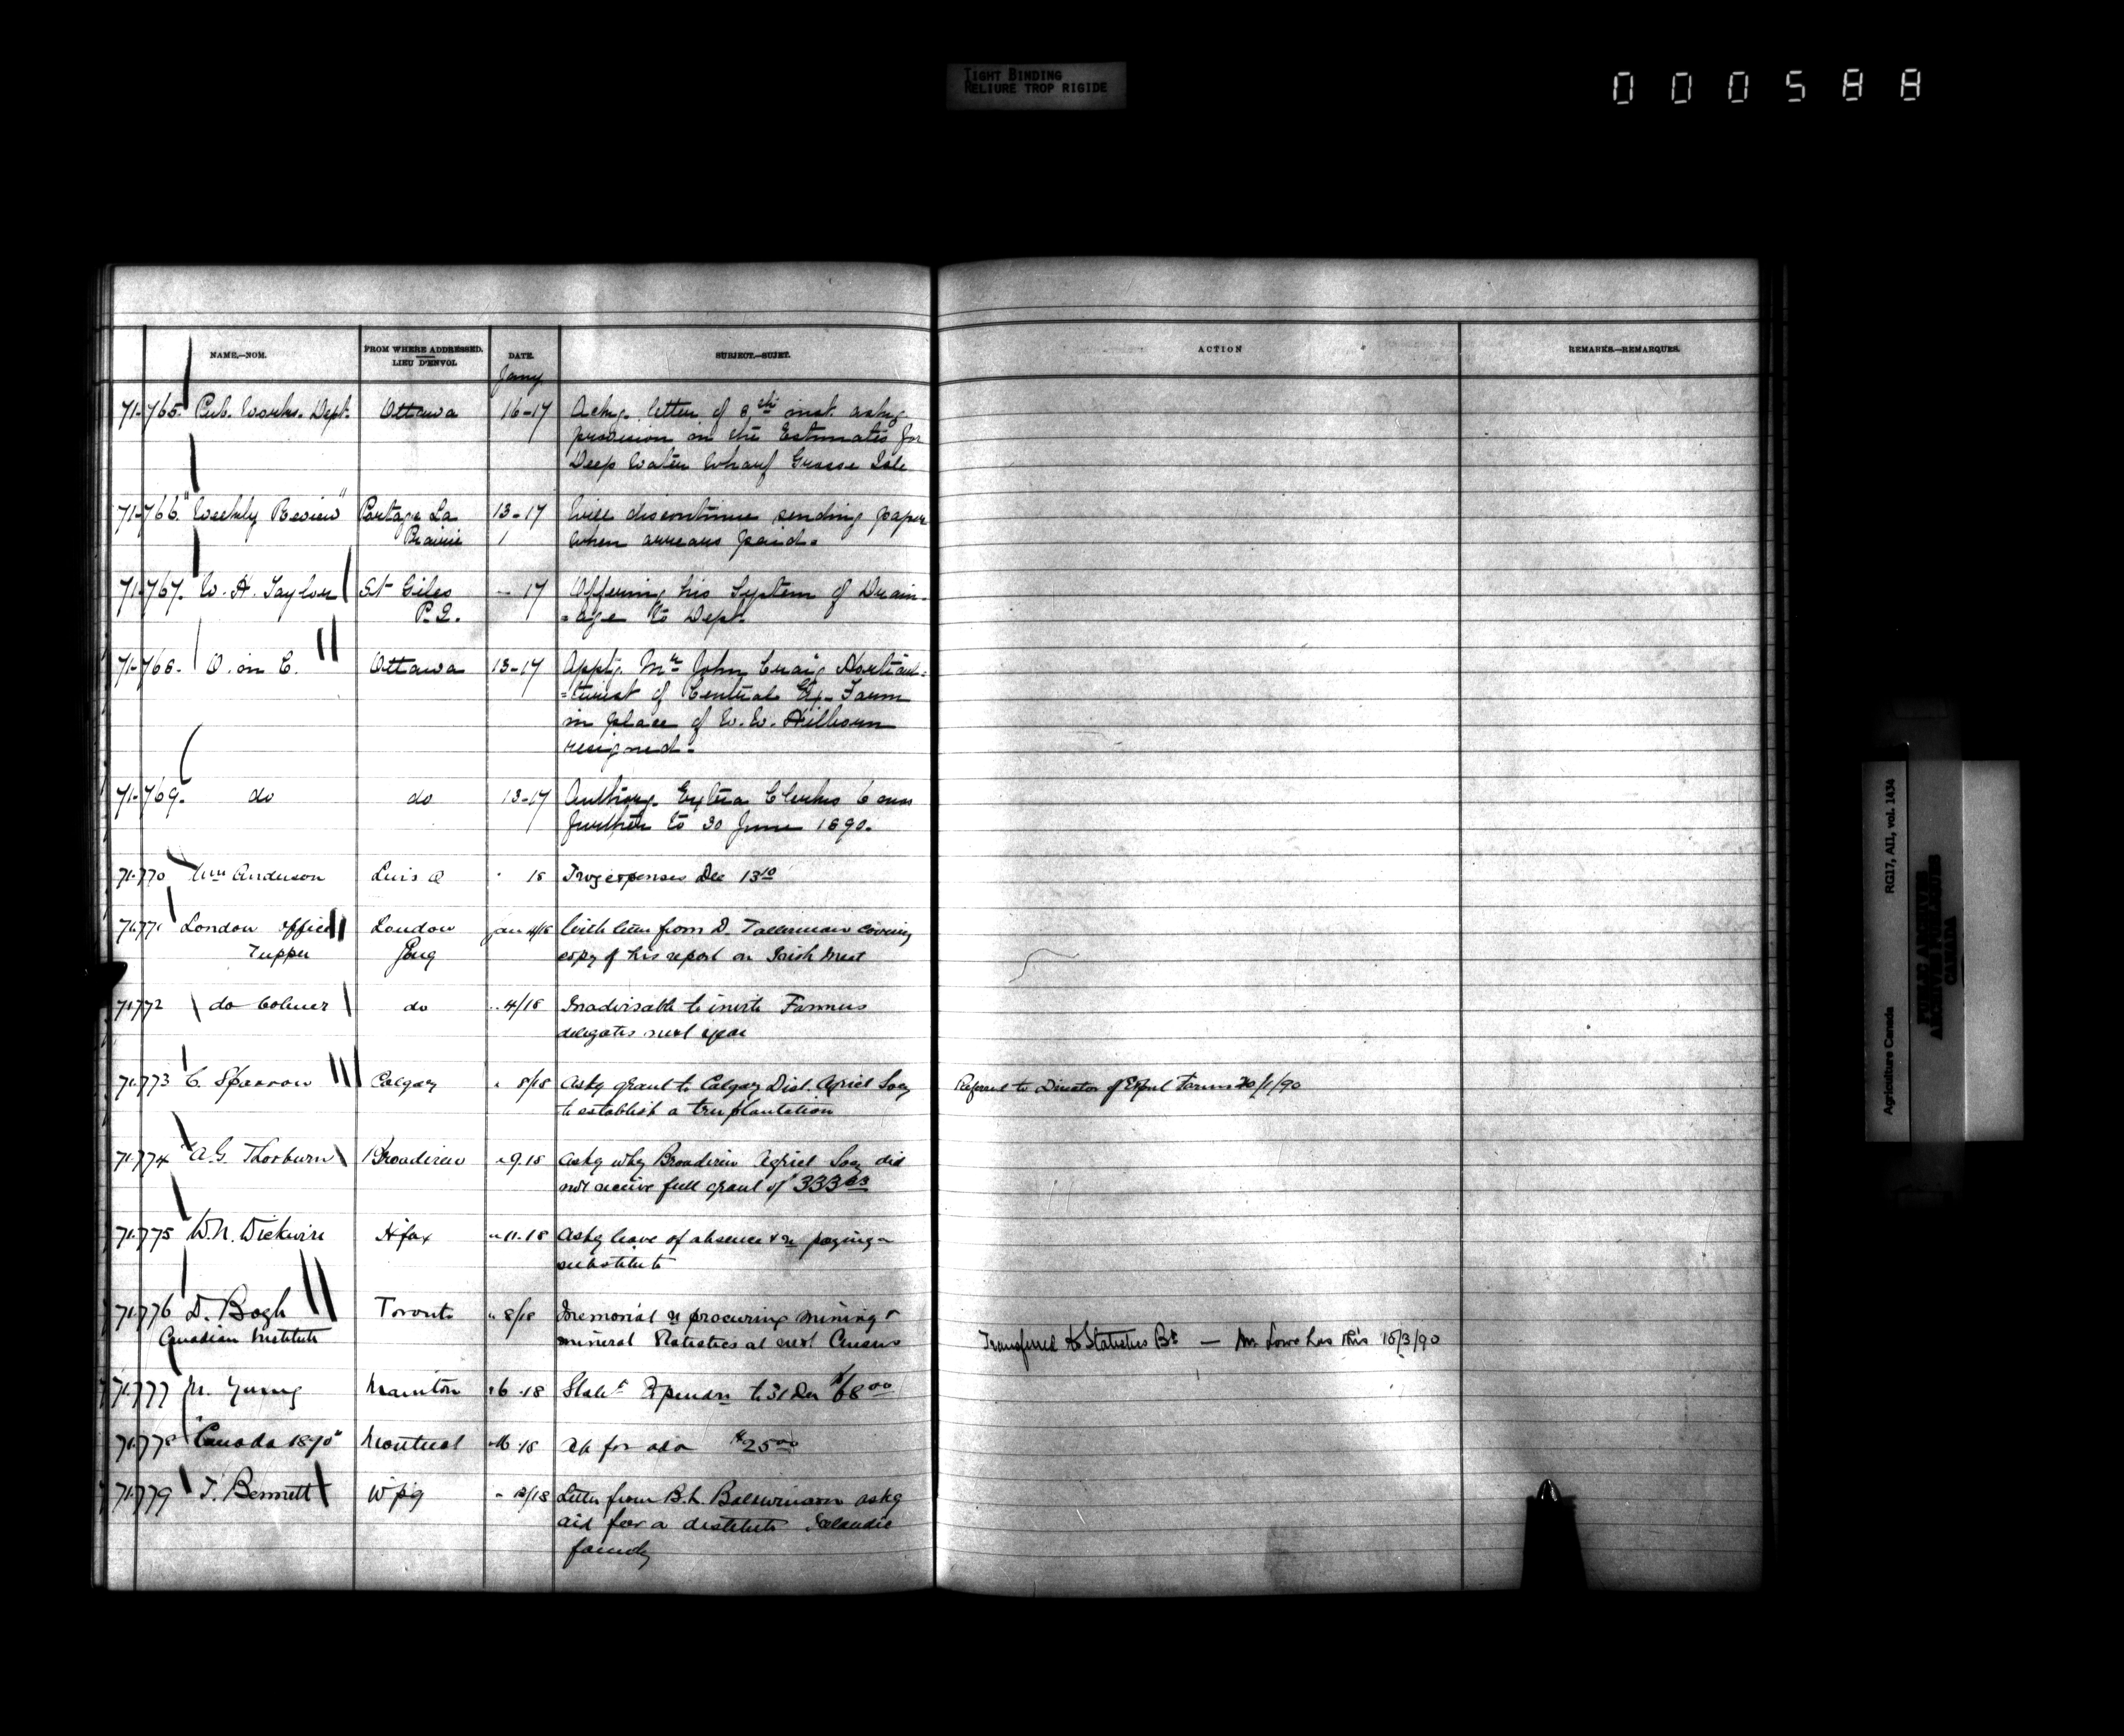 TIGHT BINDING
RELIURE TROP RIGIDE
000588
NAME.—NOM.
FROM WHERE ADDRESSED.
LIEU D'ENVOI.
DATE.
SUBJECT.—SUJET.
ACTION
REMARKS.—REMARQUES.
Jany
71-765. Pub. Works. Dept. Ottawa 16-17 Ackg. letter of 8th inst. askg
provision in the Estimates for
Deep Water Wharf Grosse Isle
71-766. "Weekly Review" Portage La 13-17 Will discontinue sending paper
Prairie when arrears paid.
71-767. W. H. Taylor St Giles - 17 Offering his System of Drain-
P.Q. =age to Dept.
71-768. O. in C. Ottawa 13-17 Apptg. Mr John Craig Horticul-
=turist of Central Ex. Farm
in place of W. W. Hilborn
resigned.
71-769. do do 13-17 Authorg. Extra Clerks 6 mos
further to 30 June 1890.
71-770 Wm Anderson Levis Q " 18 Trvg expenses Dec 13 10
71-771 London Office London Jan 4/18 With letter from D. Tallerman covering
Tupper Eng copy of his report on Irish Meat
71-772 do Colmer do " 4/18 Inadvisable to invite Farmers
delegates next year
71-773 C. Sparrow Calgary " 8/18 Askg grant to Calgary Dist Agricl Socy Referred to Director of Expml Farms 20/1/90
to establish a tree plantation
71-774 A. G. Thorburn Broadview " 9.18 Askg why Broadview Agricl Socy did
not receive full grant of 333 33
71-775 W. N. Wickwire Hfax " 11.18 Askg leave of absence & re paying
substitute
71-776 D. Bogh Toronto " 8/18 Memorial re procuring mining &
Canadian Institute mineral Statistics at next Census Transferred to Statistics Br — Mr Lowe has this 15/3/90
71-777 M. Young Manitou 16.18 Statt Expendre to 31 Dec $68 00
71-778 "Canada 1890" Montreal 16.18 a/c for adv $25 00
71-779 T. Bennett Wpg " 13/18 Letter from B. L. Baldwinson askg
aid for a destitute Icelandic
family
Agriculture Canada RG17, AI1, vol. 1434
PUBLIC ARCHIVES
ARCHIVES PUBLIQUES
CANADA